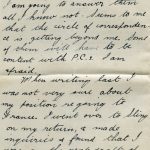 I am going to answer them
all I know not. Seems to me
that the circle of correspondence
is getting beyond me. Some
of them will have to be
content with P.C.s I am
afraid.
When writing last I
was not very sure about
my position re going to
France. I went over to Sling
on my return, & made
inquiries & found that I